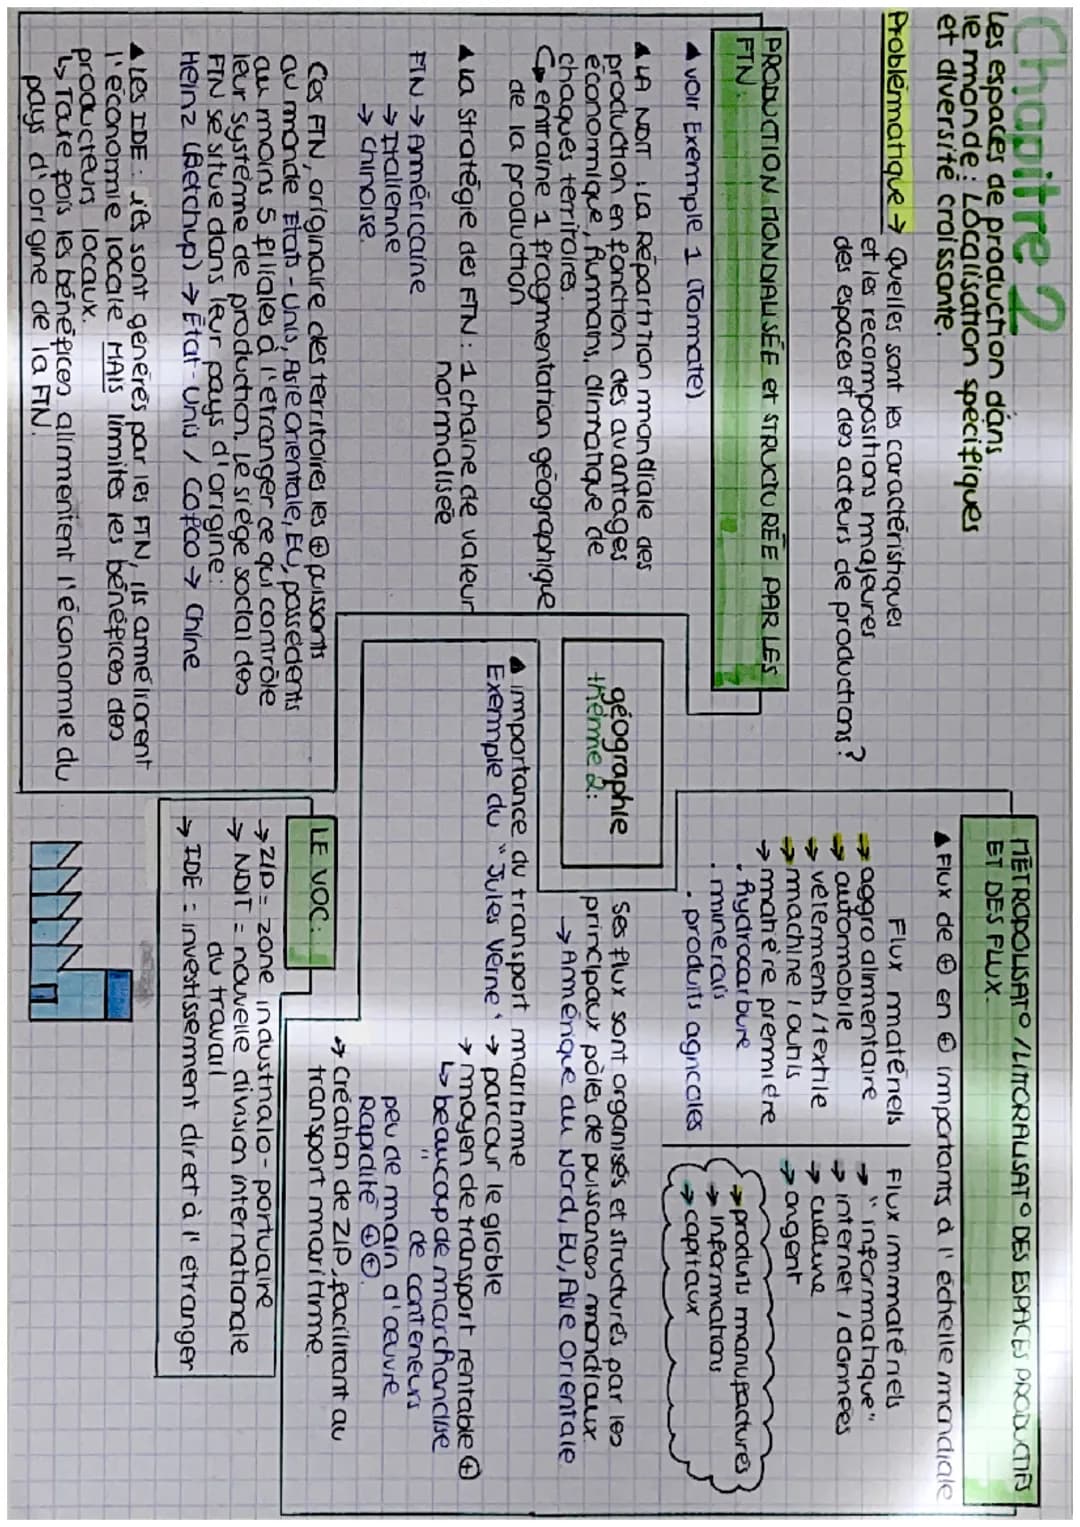 Chapitre 2
Les espaces de production dans
le monde : Localisation spécifiques
et diversité croissante.
Problématique → Quelles sont les caractéristiques
et les recompositions majeures
des espaces et des acteurs de productions ?
PRODUCTION MONDIALISÉE et STRUCTURÉE PAR LES
FTN :
▲ voir Exemple 1 (Tomate)
▲ LA NDIT : La Répartition mondiale des
production en fonction des avantages
économique, humains, climatique de
chaques territoires.
↳ entraine 1 fragmentation géographique
de la production
▲ La Stratégie des FTN : 1 chaine de valeur
normalisée
FTN → Américaine
→ Italienne
→ Chinoise.
Ces FTN, originaire des territoires les ⊕ puissants
au monde États-Unis, Asie orientale, EU, possèdents
au moins 5 filiales à l'étranger ce qui contrôle
leur système de production. Le siège social des
FTN se situe dans leur pays d'origine :
Heinz (Betchup) → État-Unis / Cofco → Chine
▲ Les IDE : ils sont générés par les FTN, ils amméliorent
l'économie locale MAIS limites les bénéfices des
producteurs locaux.
↳ Toute fois les bénéfices alimentent l'économie du
pays d'origine de la FTN.
géographie
thème 2 :
MÉTROPOLISAT° / LITTORALISAT° DES ESPACES PRODUCTIFS
ET DES FLUX.
▲ Flux de ⊕ en ⊕ importants à l'échelle mondiale
Flux matériels
→ aggro alimentaire
→ automobile
→ vêtements / textile
→ machine / outils
→ matière première
. hydrocarbure
. minerais
. produits agricoles
Flux immatériels
→ "informatique"
→ internet / données
→ culture
→ argent
→ produits manufactures
→ informations
→ capitaux
Ses flux sont organisés et structurés par les
principaux pôles de puissances mondiaux
→ Amérique du Nord, EU, Asie Orientale.
▲ Importance du transport maritime
Exemple du "Jules Verne" → parcour le globle
→ moyen de transport rentable ⊕
↳ beaucoup de marchandise
" de conteneurs
peu de main d'œuvre
Rapidité ⊕⊕.
→ création de ZIP, facilitant au
transport maritime.
LE VOC :
→ ZIP = zone industrialo-portuaire
→ NDIT = nouvelle division internationale
du travail
→ IDE = investissement direct à l'étranger